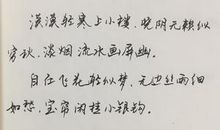 漠漠轻寒上小楼,晓阴无赖似
穷秋,淡烟流水画屏幽。
自在飞花轻似梦,无边丝雨细
如愁,宝帘闲挂小银钩。